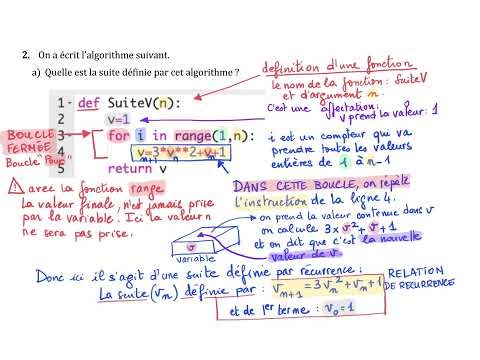 2. On a écrit l'algorithme suivant.
a) Quelle est la suite définie par cet algorithme ?
définition d'une fonction
le nom de la fonction : SuiteV
et d'argument n.
1 def SuiteV(n):
2 v=1
3 for i in range(1,n):
4 v=3*v**2+v+1
n+1 n n
5 return v
c'est une affectation:
v prend la valeur: 1
BOUCLE
FERMÉE
Boucle "Pour"
i est un compteur qui va
prendre toutes les valeurs
entières de 1 à n-1
! avec la fonction range
la valeur finale, n'est jamais prise
par la variable. Ici la valeur n
ne sera pas prise.
DANS CETTE BOUCLE, on répète
l'instruction de la ligne 4.
on prend la valeur contenue dans v
on calcule 3×v²+v+1
et on dit que c'est la nouvelle
valeur de v.
v
variable
Donc ici il s'agit d'une suite définie par récurrence :
La suite (vn) définie par : vn+1 = 3vn²+vn+1
RELATION
DE RECURRENCE
et de 1er terme : v0=1